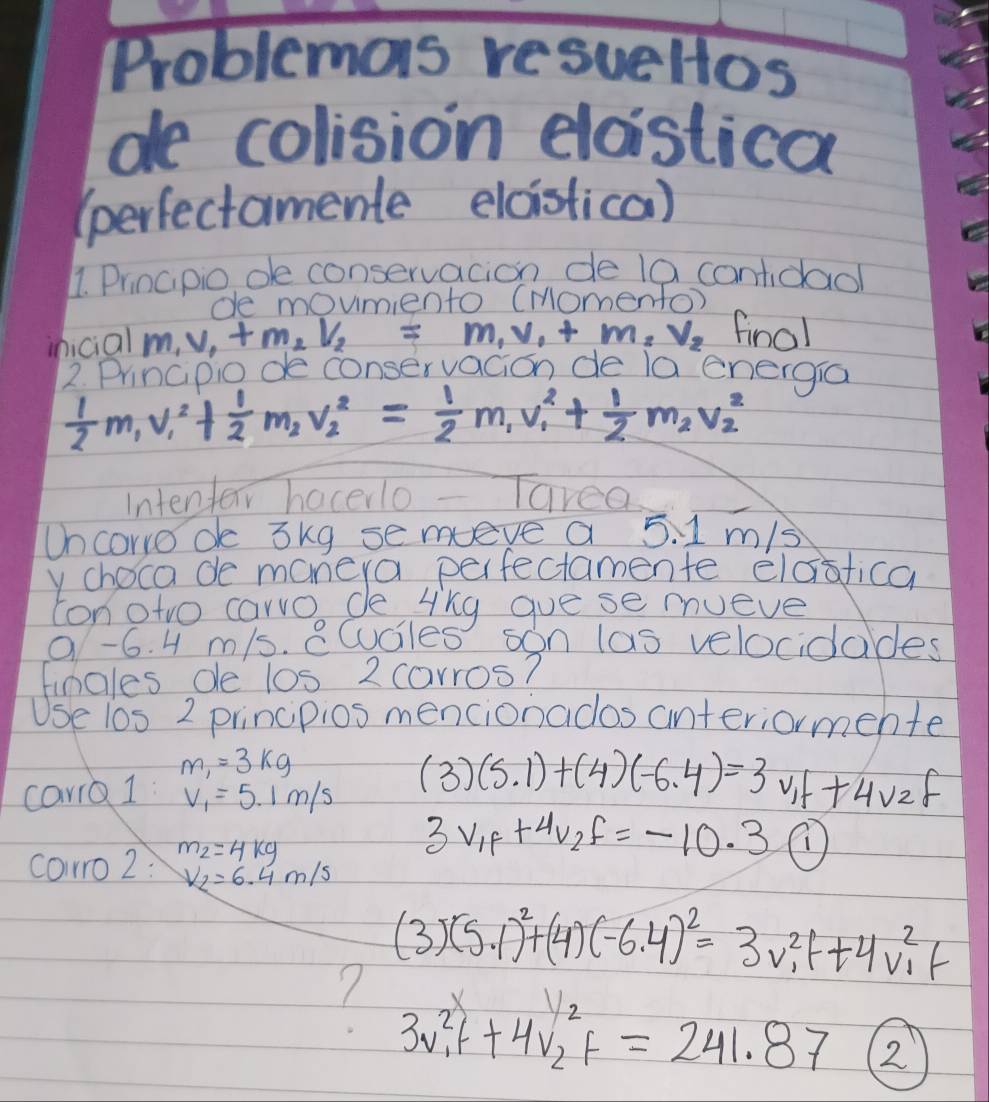 Problemas resueltos
de colisión elástica
(perfectamente elástica)
1. Principio de conservacion de la cantidad
de movimiento (Momento)
inicial m₁v₁ + m₂v₂ = m₁v₁ + m₂v₂ final
2. Principio de conservación de la energía
½ m₁v₁² + ½ m₂v₂² = ½ m₁v₁² + ½ m₂v₂²
Intentar hacerlo - Tarea
Un carro de 3kg se mueve a 5.1 m/s
y choca de manera perfectamente elástica
con otro carro de 4kg que se mueve
a -6.4 m/s. ¿Cuáles son las velocidades
finales de los 2 carros?
Use los 2 principios mencionados anteriormente
carro 1: m₁ = 3kg
v₁ = 5.1 m/s
carro 2: m₂ = 4kg
v₂ = 6.4 m/s
(3)(5.1)+(4)(-6.4) = 3v₁f + 4v₂f
3v₁f + 4v₂f = -10.3 ①
(3)(5.1)²+(4)(-6.4)² = 3v₁²f + 4v₁²f
?
x y
3v₁²f + 4v₂²f = 241.87 ②